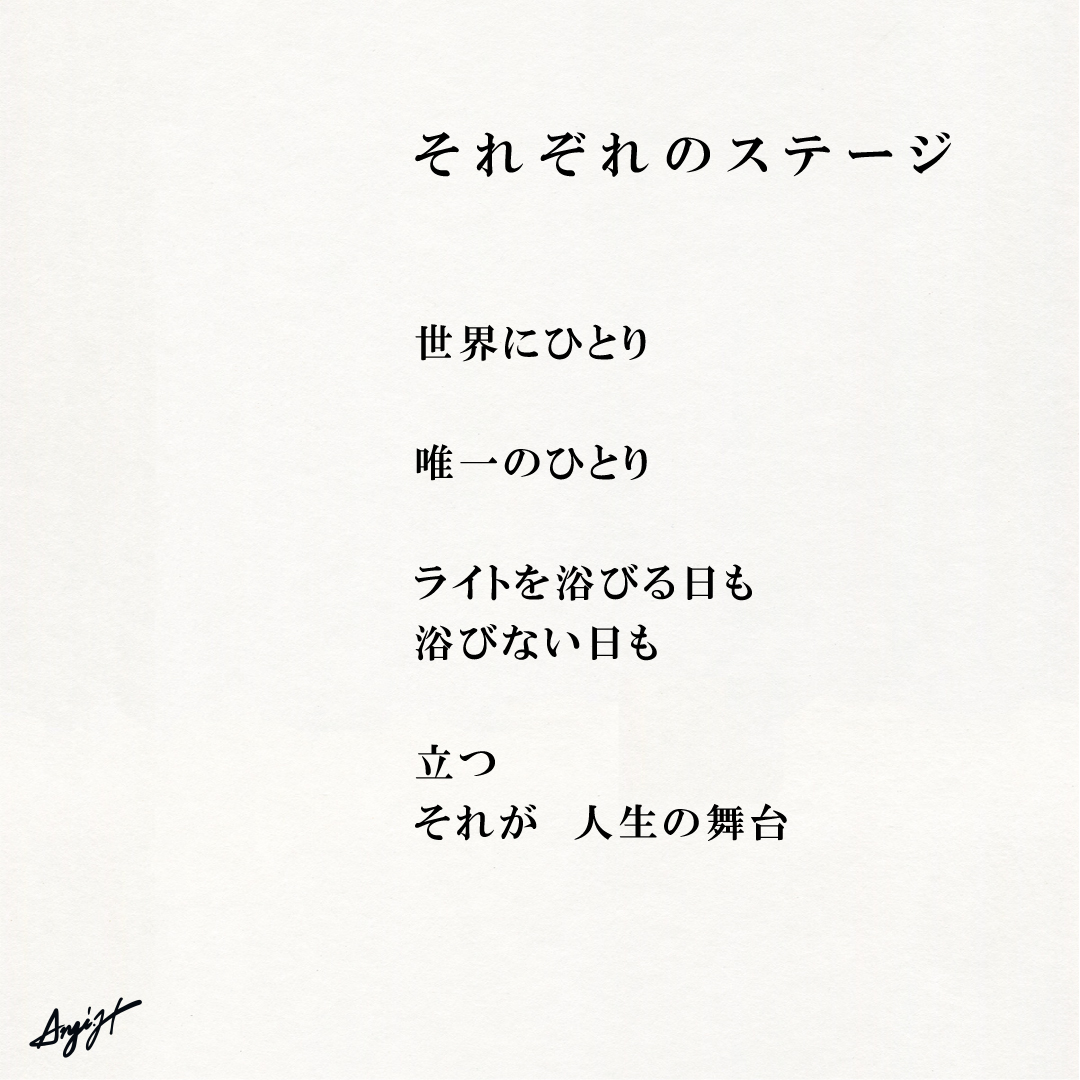 それぞれのステージ
世界にひとり
唯一のひとり
ライトを浴びる日も
浴びない日も
立つ
それが　人生の舞台